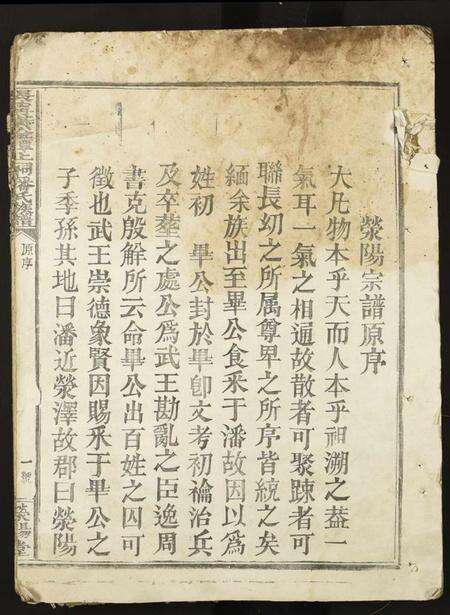 滎陽宗譜原序
大凡物本乎天而人本乎祖溯之葢一
氣耳一氣之相通故散者可聚踈者可
聯長幼之所属尊卑之所序皆統之矣
緬余族出至畢公食采于潘故因以爲
姓初　畢公封於畢卽文考初禴治兵
及卒塟之處公爲武王勘亂之臣逸周
書克殷觧所云命畢公出百姓之囚可
徵也武王崇德象賢因賜采于畢公之
子季孫其地曰潘近滎澤故郡曰滎陽
上祠潘氏
原序
一號
滎陽堂